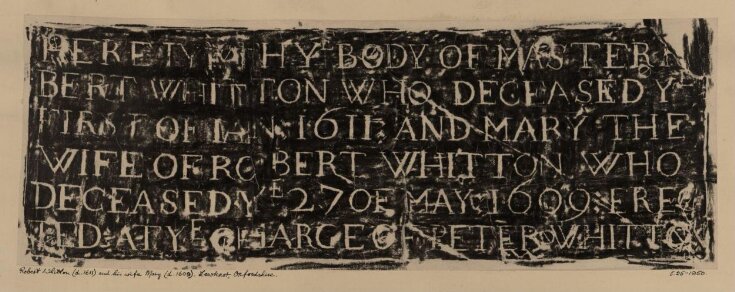 HERE LYETH Yᴱ BODY OF MASTER R
BERT WHITTON WHO DECEASED Yᴱ
FIRST OF IAN: 1611 AND MARY THE
WIFE OF ROBERT WHITTON WHO
DECEASED Yᴱ 27 OF MAY 1609: EREC
TED AT Yᴱ CHARGE OF PETER WHITTON
Robert Whitton (d. 1611) and his wife Mary (d. 1609).
Oxfordshire.
E.55-1950.